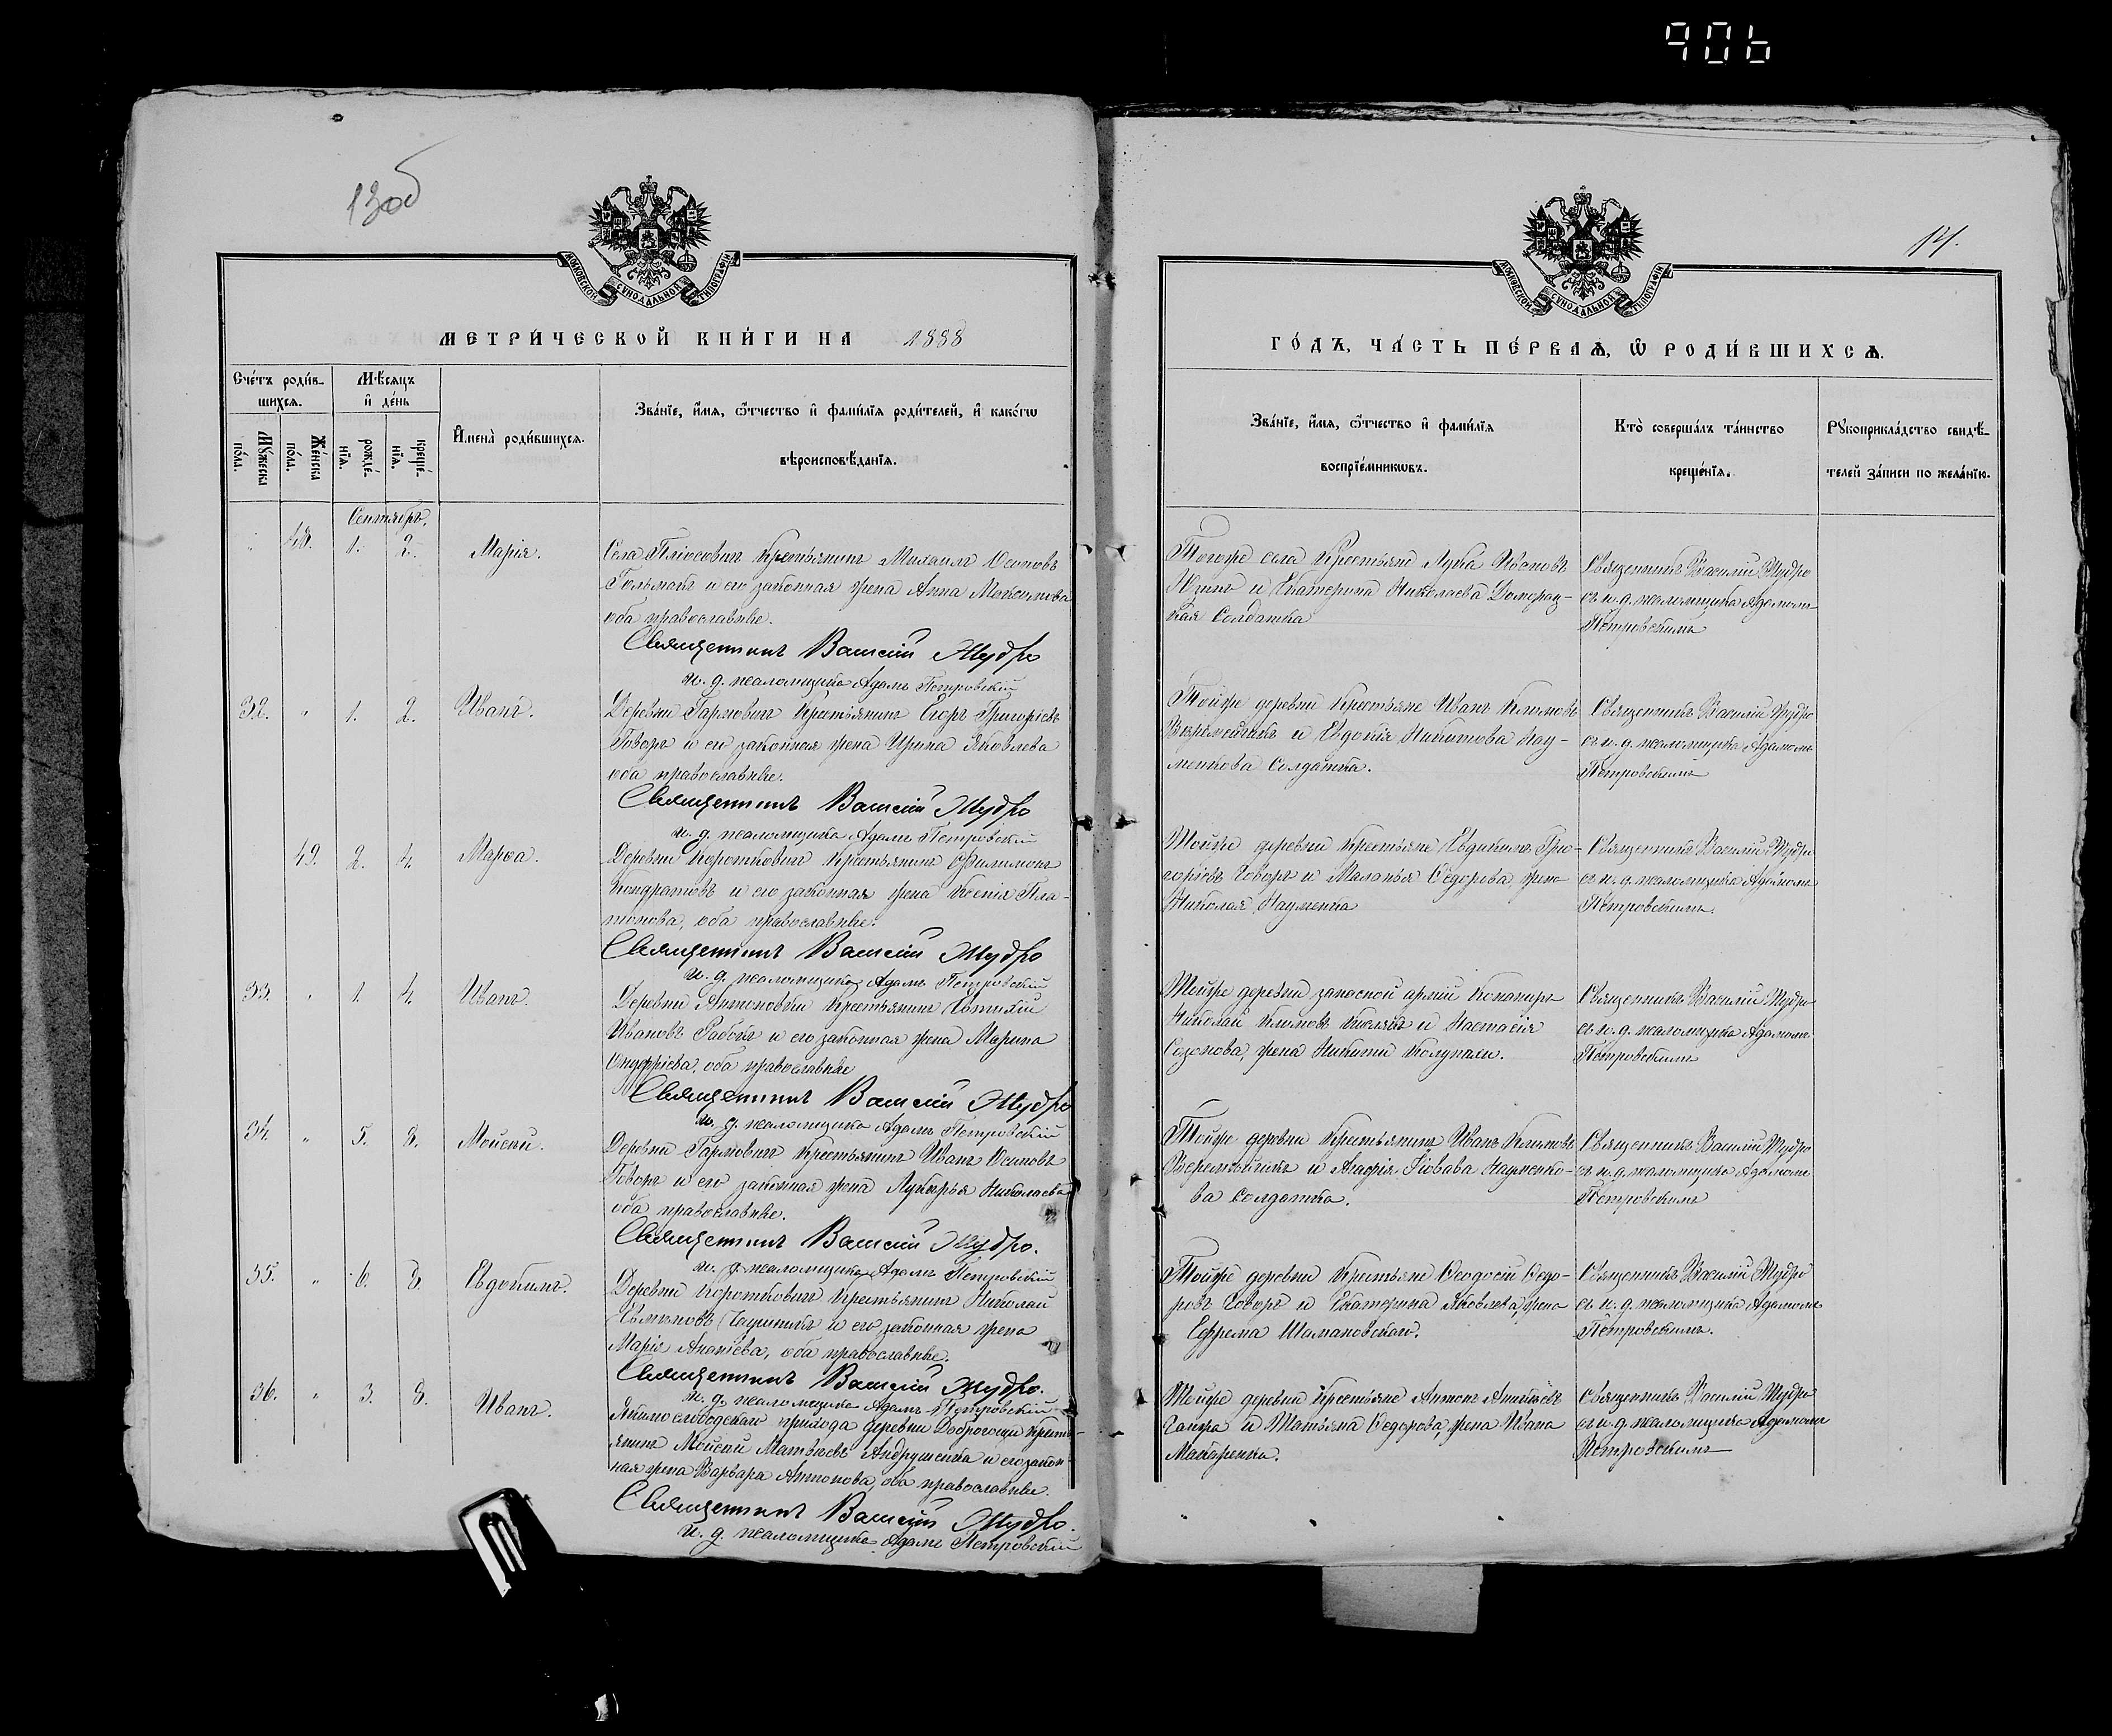 906
13об
14.
МОСКОВСКОЙ СУНОДАЛЬНОЙ ТИПОГРАФІИ
МЕТРИ́ЧЕСКОЙ КНИ́ГИ НА 1888
Сче́тъ роди́в-
шихсѧ.
Мѣ́сѧцъ
и҆ де́нь
Мꙋ́жеска
по́ла.
Же́нска
по́ла.
рожде́-
нїѧ.
креще́-
нїѧ.
И҆мена̀ роди́вшихсѧ.
Зва́нїе, и҆́мѧ, ѻ҆́тчество и҆ фами́лїѧ роди́телей, и҆ како́гѡ
вѣроисповѣ́данїѧ.
Сентябрь.
" 48. 1. 2. Марія.
Села крестьянинъ Михаилъ Осиповъ
и его законная жена Анна
оба православные.
Священникъ Василій Мудро
и. д. псаломщика Адамъ Петровскій
32. " 1. 2. Иванъ.
Деревни Гармовичъ крестьянинъ Егоръ Григорьевъ
Говоръ и его законная жена Ирина Яковлева
оба православные.
Священникъ Василій Мудро
и. д. псаломщика Адамъ Петровскій
49. 2. 4. Марѳа.
Деревни Коротковичъ крестьянинъ Филимонъ
Кондратовъ и его законная жена Ксенія Пла-
тонова, оба православные.
Священникъ Василій Мудро
и. д. псаломщика Адамъ Петровскій
33. " 1. 4. Иванъ.
Деревни Антоновки крестьянинъ
Ивановъ и его законная жена Марина
Онуфріева, оба православные
Священникъ Василій Мудро
и. д. псаломщика Адамъ Петровскій
34. " 5. 8. Моисей.
Деревни Гармовичъ крестьянинъ Иванъ Осиповъ
Говоръ и его законная жена Лукерья Николаева
оба православные.
Священникъ Василій Мудро.
и. д. псаломщика Адамъ Петровскій
35. " 6. 8. Евдокимъ.
Деревни Коротковичъ крестьянинъ Николай
и его законная жена
Марія Ананіева, оба православные.
Священникъ Василій Мудро.
и. д. псаломщика Адамъ Петровскій
36. " 3. 8. Иванъ.
Якимослободскаго прихода деревни Доброгощи кресть-
янинъ Моисей Матвѣевъ Андрушенка и его закон-
ная жена Варвара Антонова, оба православные.
Священникъ Василій Мудро.
и. д. псаломщика Адамъ Петровскій
МОСКОВСКОЙ СУНОДАЛЬНОЙ ТИПОГРАФІИ
ГО́ДЪ, ЧА́СТЬ ПЕ́РВАѦ, Ѡ҆ РОДИ́ВШИХСѦ.
Зва́нїе, и҆́мѧ, ѻ҆́тчество и҆ фами́лїѧ
воспрїе́мникѡвъ.
Кто̀ соверша́лъ та́инство
креще́нїѧ.
Рꙋкоприкла́дство свидѣ́-
телей за́писи по жела́нїю.
Тогоже села крестьяне Лука Ивановъ
и Екатерина Николаева Домерац-
кая солдатка
Священникъ Василій Мудро
съ и. д. псаломщика Адамомъ
Петровскимъ
Тойже деревни крестьяне Иванъ Климовъ
и Евдокія Никитова Нау-
менкова солдатка.
Священникъ Василій Мудро
съ и. д. псаломщика Адамомъ
Петровскимъ
Тойже деревни крестьяне Евдокимъ Гри-
горьевъ Говоръ и Маланья Ѳедорова, жена
Николая Науменка
Священникъ Василій Мудро
съ и. д. псаломщика Адамомъ
Петровскимъ.
Тойже деревни запасной арміи
Николай Климовъ и Настасія
жена Никиты
Священникъ Василій Мудро
съ и. д. псаломщика Адамомъ
Петровскимъ
Тойже деревни крестьянинъ Иванъ Климовъ
и Агафія Науменко-
ва солдатка.
Священникъ Василій Мудро
съ и. д. псаломщика Адамомъ
Петровскимъ
Тойже деревни крестьяне Ѳеодосій Ѳедо-
ровъ Говоръ и Екатерина Яковлева, жена
Ефрема Шамановскаго.
Священникъ Василій Мудро
съ и. д. псаломщика Адамомъ
Петровскимъ.
Тойже деревни крестьяне Антонъ
и Татьяна Ѳедорова, жена Ивана
Макаренка.
Священникъ Василій Мудро
съ и. д. псаломщика Адамомъ
Петровскимъ